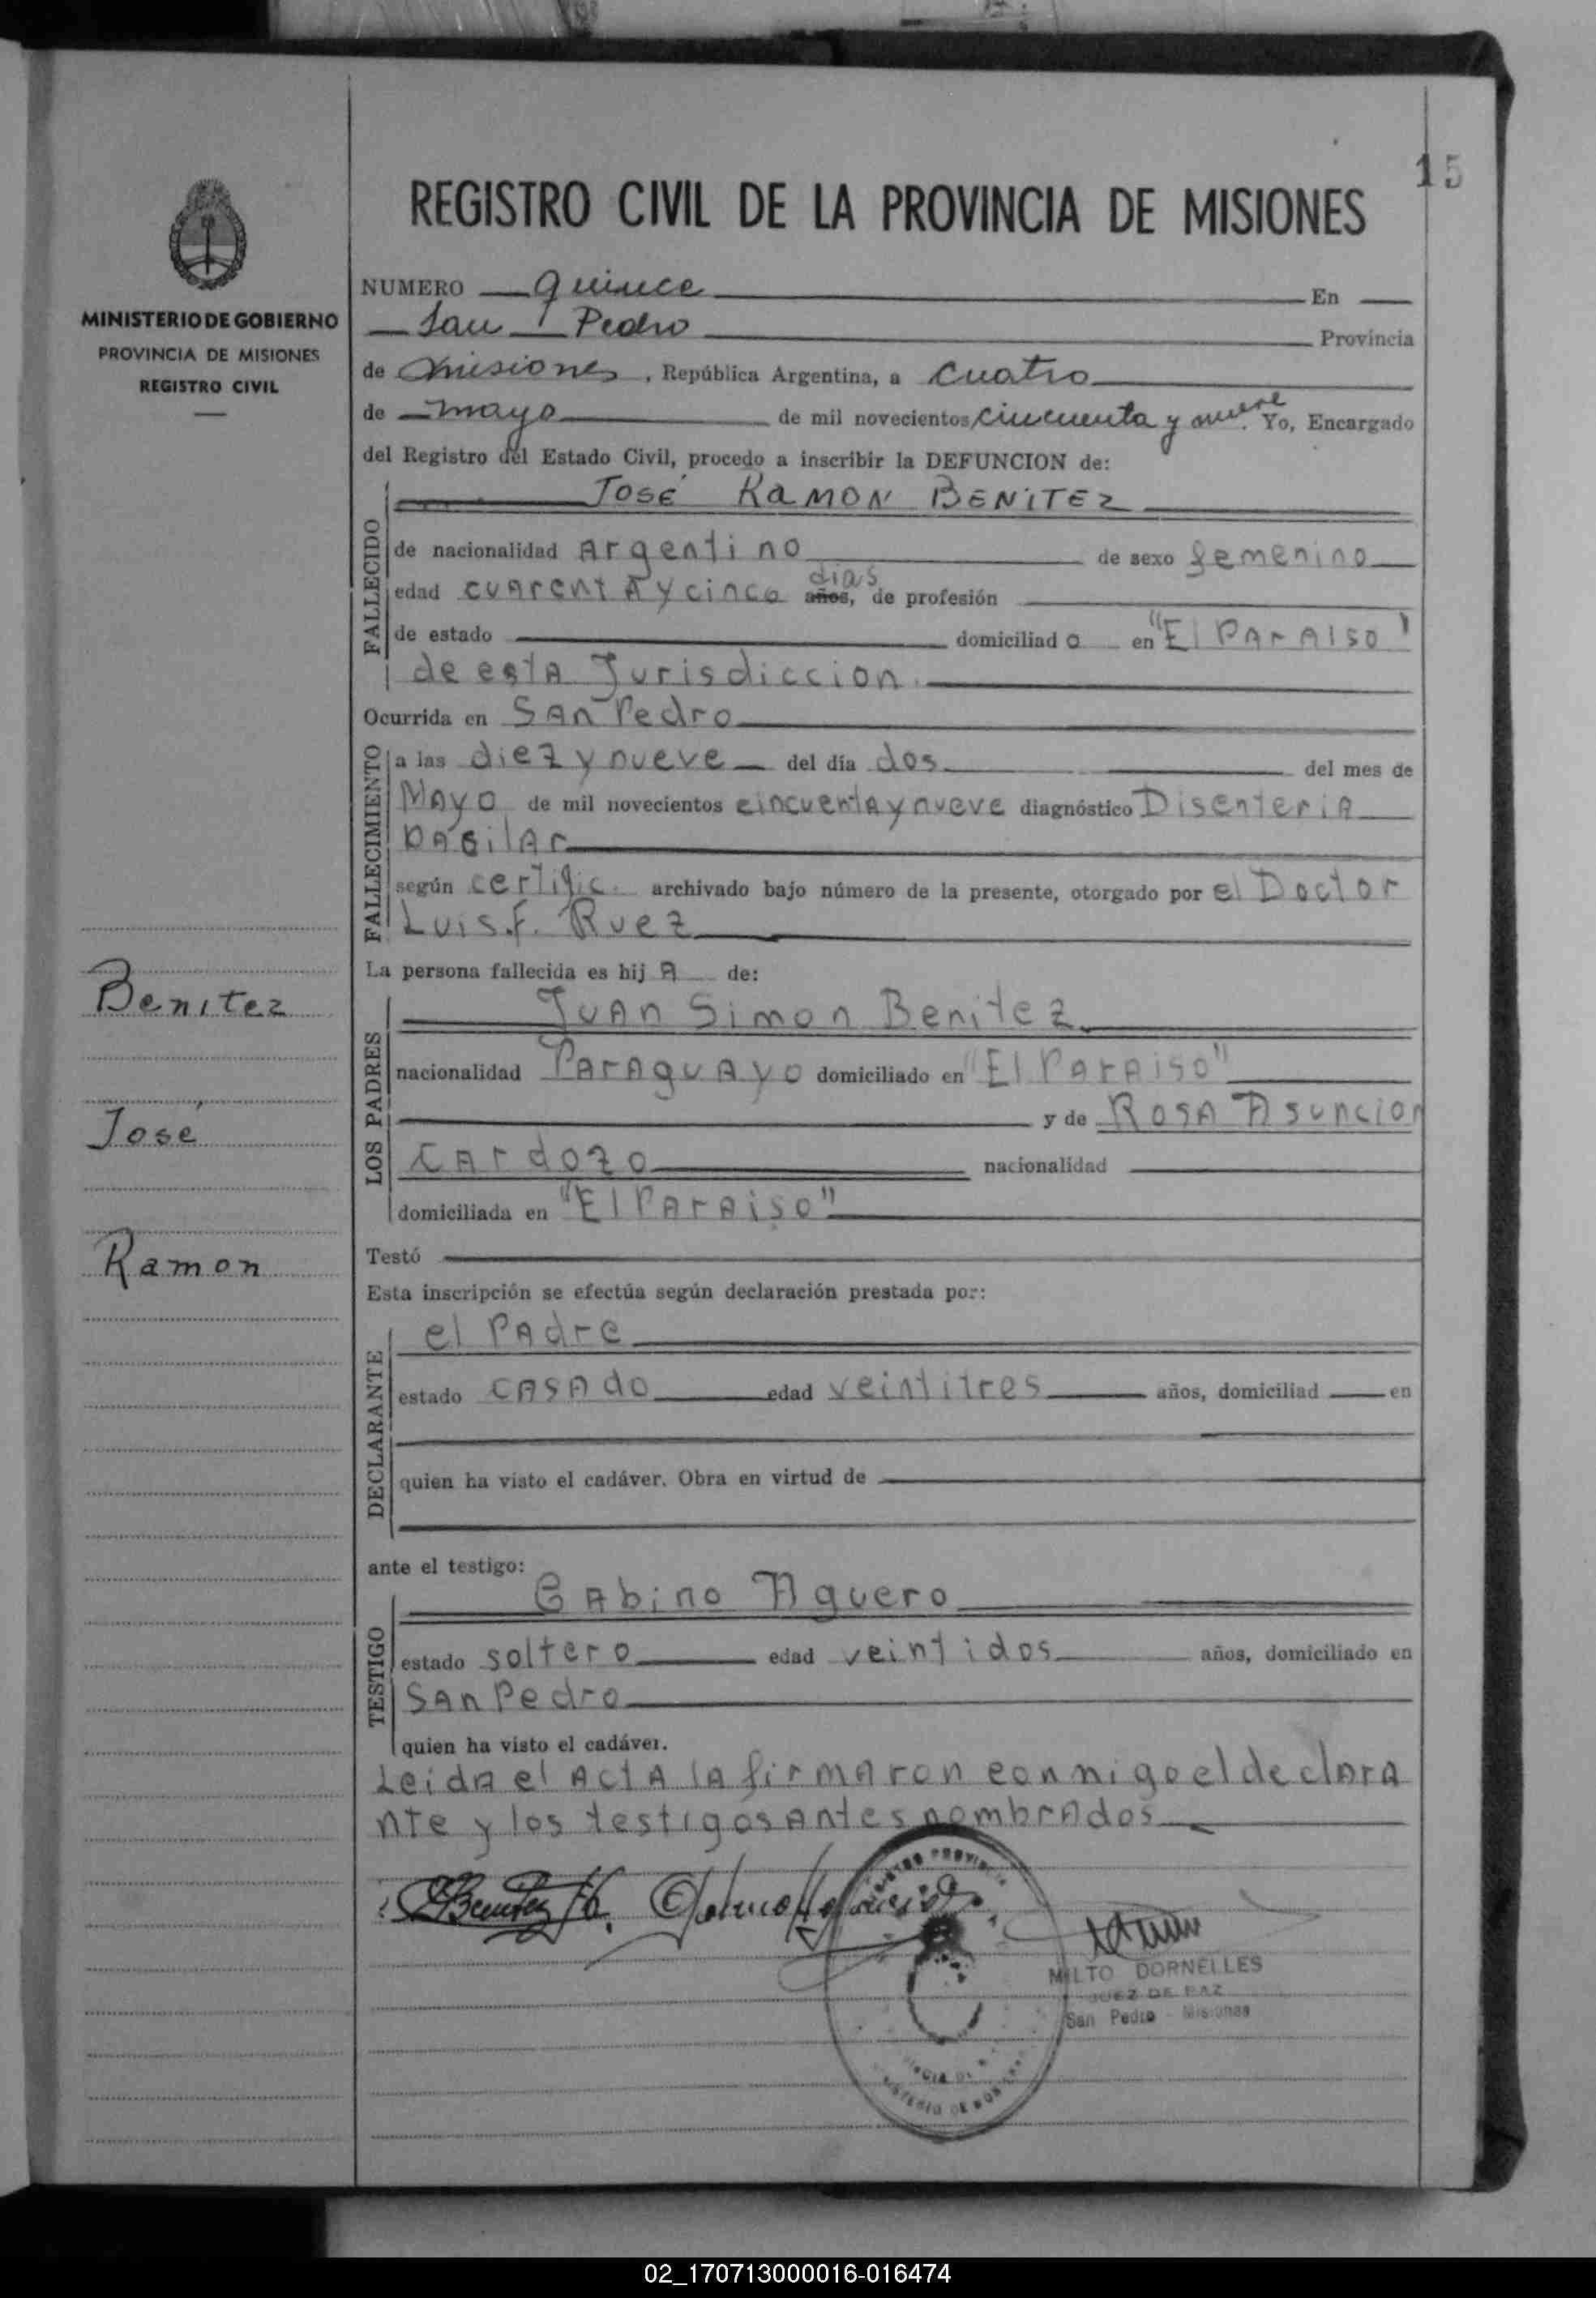 15
REGISTRO CIVIL DE LA PROVINCIA DE MISIONES
MINISTERIO DE GOBIERNO
PROVINCIA DE MISIONES
REGISTRO CIVIL
NUMERO quince En
San Pedro Provincia
de Misiones, República Argentina, a cuatro
de mayo de mil novecientos cincuenta y nueve. Yo, Encargado
del Registro del Estado Civil, procedo a inscribir la DEFUNCION de:
JOSÉ RAMON BENITEZ
FALLECIDO
de nacionalidad Argentino de sexo femenino
edad cuarentAycinco años, dias de profesión
de estado domiciliado en "El PArAiso"
de estA Jurisdiccion.
Ocurrida en SAn Pedro
FALLECIMIENTO
a las diez y nueve del día dos del mes de
MAyo de mil novecientos cincuentAynueve diagnóstico DisenteriA
bAsilAr
según certific. archivado bajo número de la presente, otorgado por el Doctor
Luis.F. Ruez
La persona fallecida es hijA de:
LOS PADRES
JuAn Simon Benitez
nacionalidad PArAguAyo domiciliado en "El PArAiso"
y de ROSA Asuncion
CArdozo nacionalidad
domiciliada en "El PArAiso"
Testó
Esta inscripción se efectúa según declaración prestada por:
DECLARANTE
el PAdre
estado CASAdo edad veintitres años, domiciliad en
quien ha visto el cadáver. Obra en virtud de
ante el testigo:
TESTIGO
GAbino Aguero
estado soltero edad veintidos años, domiciliado en
SAn Pedro
quien ha visto el cadáver.
LeidA el ActA lA firmAron conmigo el declArA
nte y los testigos Antes nombrAdos
Benitez
José
Ramon
MILTO DORNELLES
JUEZ DE PAZ
San Pedro - Misiones
02_170713000016-016474